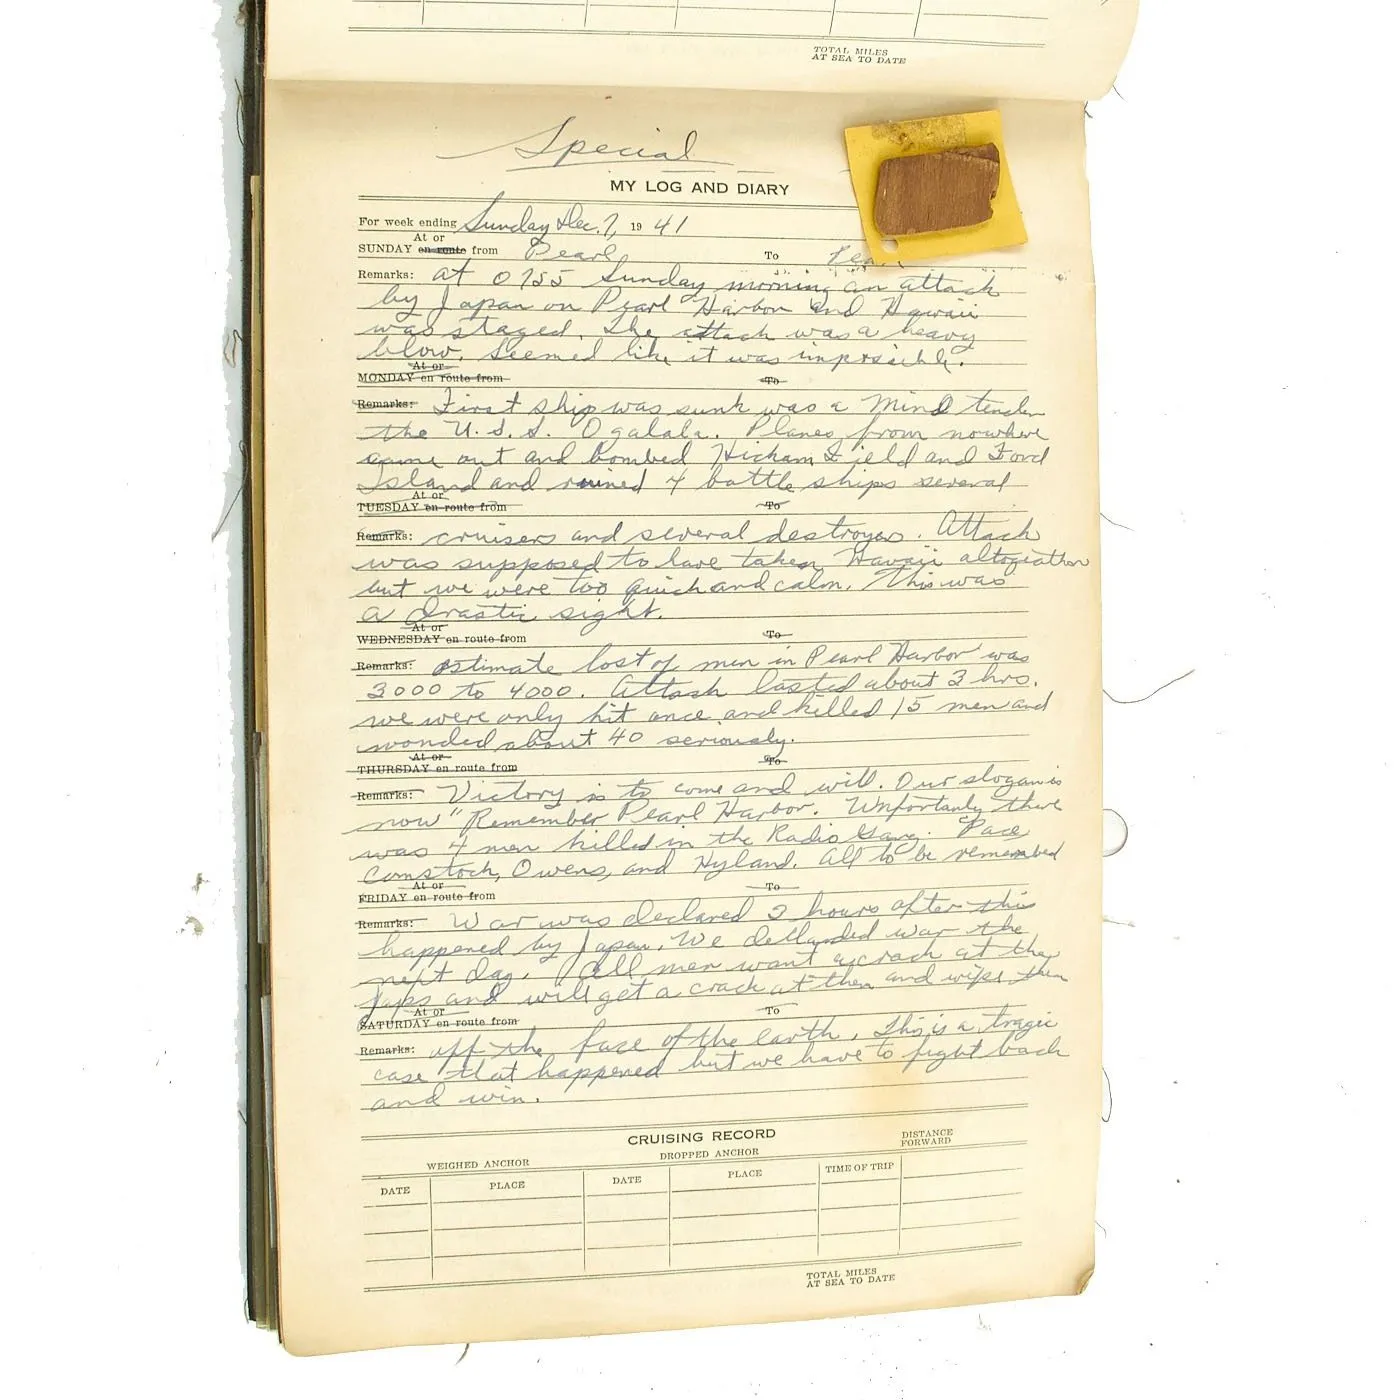 TOTAL MILES
AT SEA TO DATE
Special
MY LOG AND DIARY
For week ending Sunday Dec. 7, 19 41
At or
SUNDAY en route from Pearl To Pea
Remarks: at 0755 Sunday morning an attack
by Japan on Pearl Harbor and Hawaii
was staged. The attack was a heavy
blow. Seemed like it was impossible.
At or
MONDAY en route from To
Remarks: First ship was sunk was a Mind tender
the U.S.S. Ogalala. Planes from nowhere
came out and bombed Hickam Field and Ford
Island and ruined 4 battle ships several
At or
TUESDAY en route from To
Remarks: cruisers and several destroyers. Attack
was supposed to have taken Hawaii
but we were too quick and calm. This was
a drastic sight.
At or
WEDNESDAY en route from To
Remarks: estimate lost of men in Pearl Harbor was
3000 to 4000. Attack lasted about 3 hrs.
we were only hit once and killed 15 men and
wonded about 40 seriously.
At or
THURSDAY en route from To
Remarks: Victory is to come and will. Our slogan is
now "Remember Pearl Harbor. Unfortanly there
was 4 men killed in the Radio Gang. Pace
Comstock, Owens, and Hyland. All to be remembed
At or
FRIDAY en route from To
Remarks: War was declared 2 hours after this
happened by Japan. We decllanded war the
next day. All men want a crack at the
Japs and will get a crack at them and wipe them
At or
SATURDAY en route from To
Remarks: off the face of the earth. This is a tragic
case that happened but we have to fight back
and win.
CRUISING RECORD
DISTANCE
FORWARD
WEIGHED ANCHOR DROPPED ANCHOR
DATE PLACE DATE PLACE TIME OF TRIP
TOTAL MILES
AT SEA TO DATE